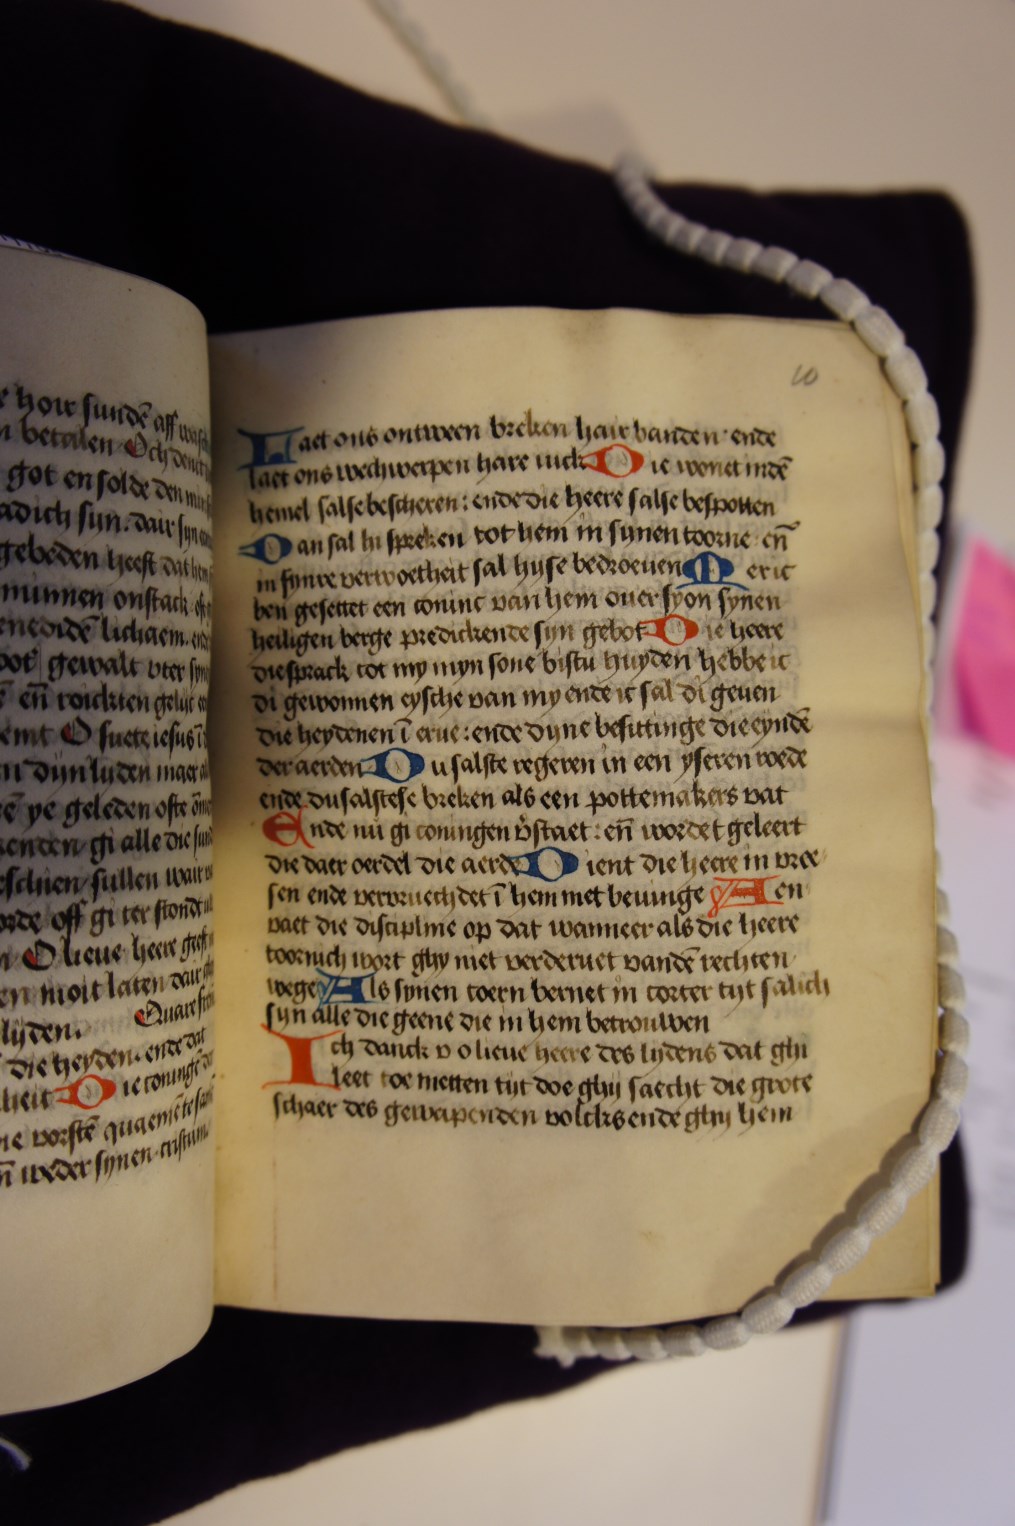 how sundē aff
betalen Och
got en solde den
sijn. dair sijn
gebeden heeft dat
minnen onstack
lichaem. ende
gewalt vter
eñ roickten gelijc
O suete iesus ī
dijn lijden maer
ye geleden ofte
gi alle die
sullen
off gi ter stondt
O lieue heere
moit laten
lijden. Quare
die heyden. ende dat
Die coningē
vorstē quamē te
weder synen cristum
10
Laet ons ontween breken hair banden ende
laet ons wechwerpen hare iuck Die wonet indē
hemel salse bescheren: ende die heere salse bespotten
Dan sal hi spreken tot hem in synen toorne eñ
in synre verwoetheit sal hyse bedroeuen Mer ic
ben gesettet een coninc van hem ouer syon synen
heiligen berge predickende syn gebot Die heere
die sprack tot my myn sone bistu huyden hebbe ic
di gewonnen eysche van my ende ic sal di geuen
die heydenen ī erue: ende dyne besittinge die eyndē
der aerden Du salste regeren in een yseren roede
ende du salstese breken als een pottemakers vat
Ende nu gi coningen v̄staet: eñ wordet geleert
die daer oerdel die aerde Dient die heere in vree
sen ende vervruechdet ī hem met beuinge Aen
vaet die discipline op dat wanneer als die heere
toornich wort ghy niet verderuet vandē rechten
wege Als synen toern bernet in corter tijt salich
syn alle die geene die in hem betrouwen
Ich danck v o lieue heere des lydens dat ghi
leet toe metten tijt doe ghij saecht die grote
schaer des gewapenden volcks ende ghij hem